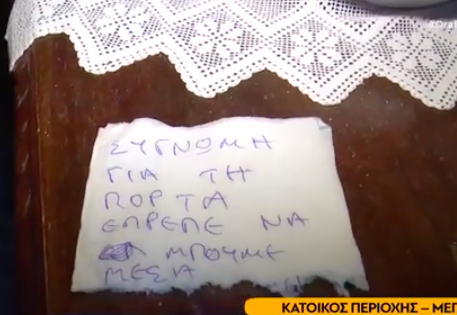 ΣΥΓΝΩΜΗ
ΓΙΑ ΤΗ
ΠΟΡΤΑ
ΕΠΡΕΠΕ ΝΑ
ΜΠΟΥΜΕ
ΜΕΣΑ
ΚΑΤΟΙΚΟΣ ΠΕΡΙΟΧΗΣ – ΜΕΓ